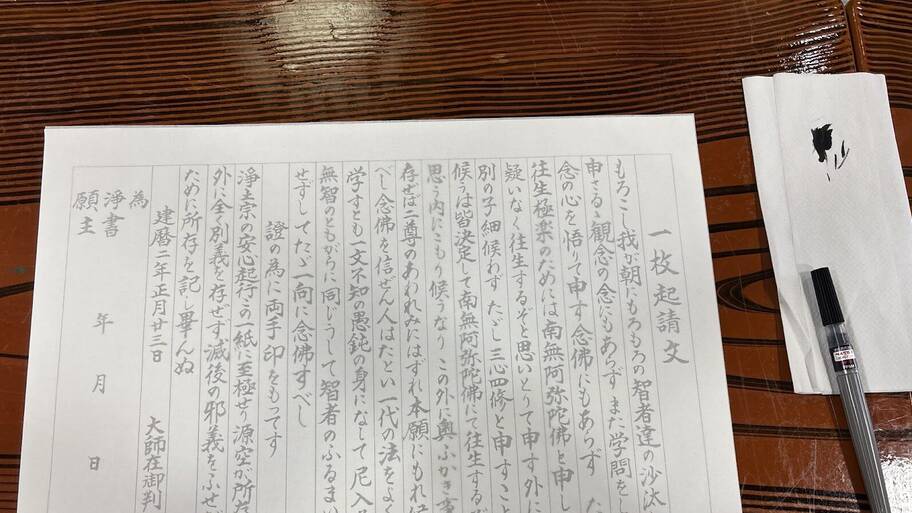 一枚起請文
もろこし我が朝にもろもろの智者達の沙汰
申さるゝ観念の念にもあらず また学問をし
念の心を悟りて申す念佛にもあらず た
往生極楽のためには南無阿弥陀佛と申し
疑いなく往生するぞと思いとりて申す外に
別の子細候わず たゞし三心四修と申すこと
候うは皆決定して南無阿弥陀佛にて往生するぞ
思う内にこもり候うなり この外に奥ふかき事
存ぜば二尊のあわれみにはずれ本願にもれ候
べし 念佛を信ぜん人はたとい一代の法をよく
学すとも一文不知の愚鈍の身になして尼入
無智のともがらに同じうして智者のふるまい
せずしてたゞ一向に念佛すべし
證の為に両手印をもってす
浄土宗の安心起行この一紙に至極せり源空が所存
外に全く別義を存ぜず滅後の邪義をふせ
ために所存を記し畢んぬ
建暦二年正月廿三日
大師在御判
為
浄書
願主
年 月 日